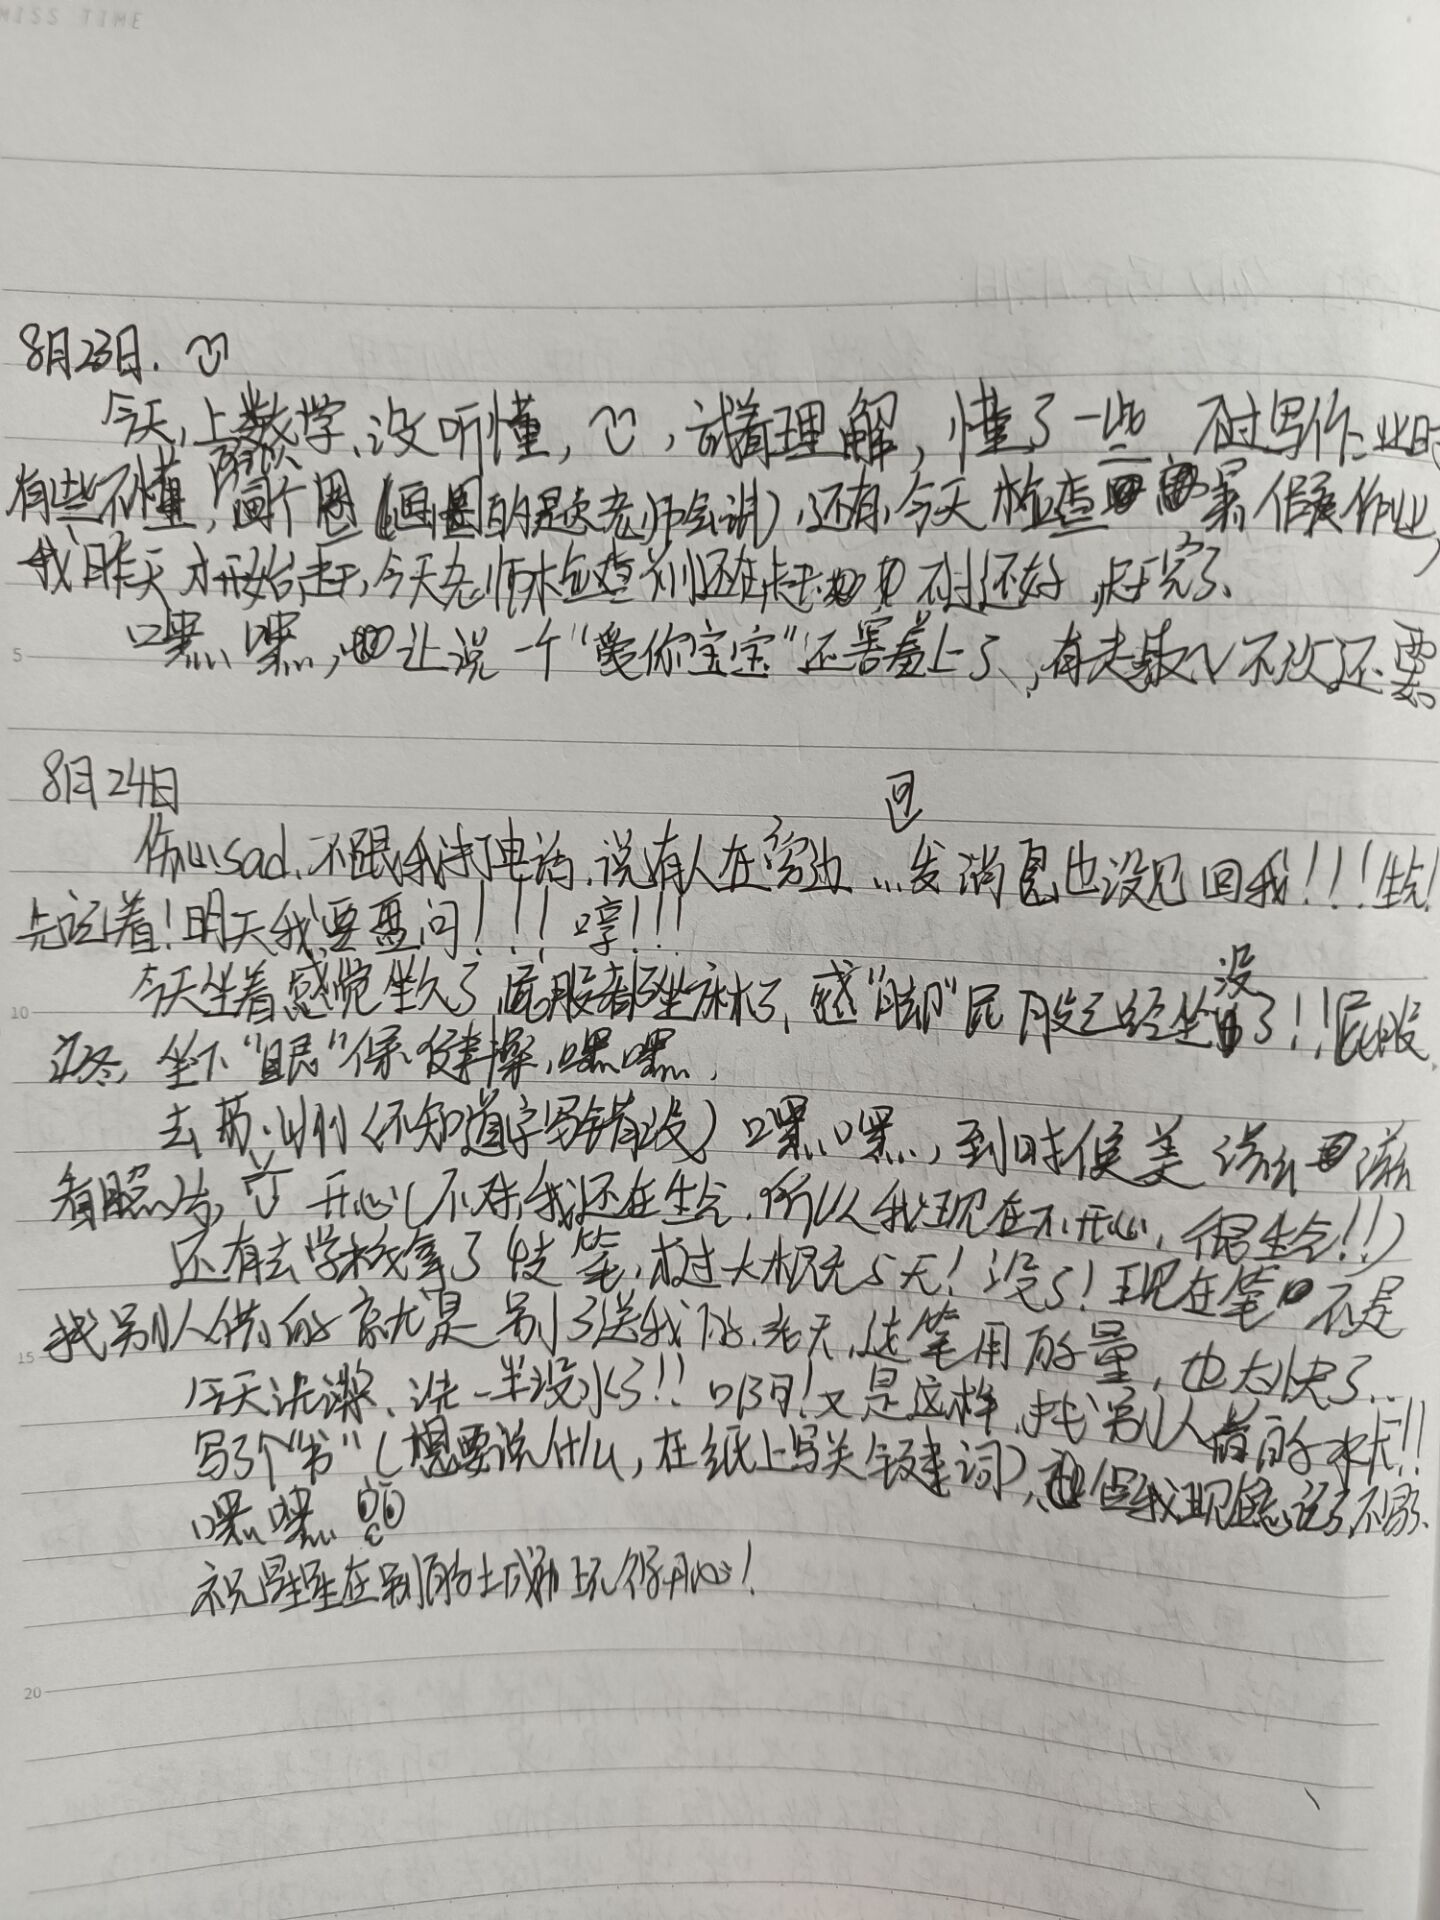 MISS TIME
8月23日.
今天,上数学,没听懂,,试着理解,懂了一些 不过写作业时
有些不懂,画个圈(画圈的题老师会讲),还有,今天检查暑假作业,
我昨天才开始赶,今天老师检查前还在赶 不过还好,赶完了、
嘿嘿,让说一个“爱你宝宝”还害羞上了、有进步~不改还要
5
8月24日
回
伤心sad、不跟我打电话,说有人在旁边…发消息也没见回我!!!生气!
先记着!明天我要盘问!!!哼!!!
没
今天坐着感觉坐久了屁股都坐麻了,感“脚”屁股已经坐了!!屁股
10
疼,坐下“眼”保健操,嘿嘿,
去苏州(不知道字写错没)嘿嘿,到时候美滋滋
看照片,开心(不对,我还在生气,所以我现在不开心,很生气!!)
还有去学校拿了4支笔,不过大概充5天!没了!现在笔不是
我别人借的就是别了送我的.老天,这笔用的量,也太快了…
15
今天洗澡、洗一半没水了!!啊!又是这样,找别人借的水卡!!
写了个“书”(想要说什么,在纸上写关键词),但我现在忘记了,不写了、
嘿嘿
祝星星在别的城市玩得开心!
20